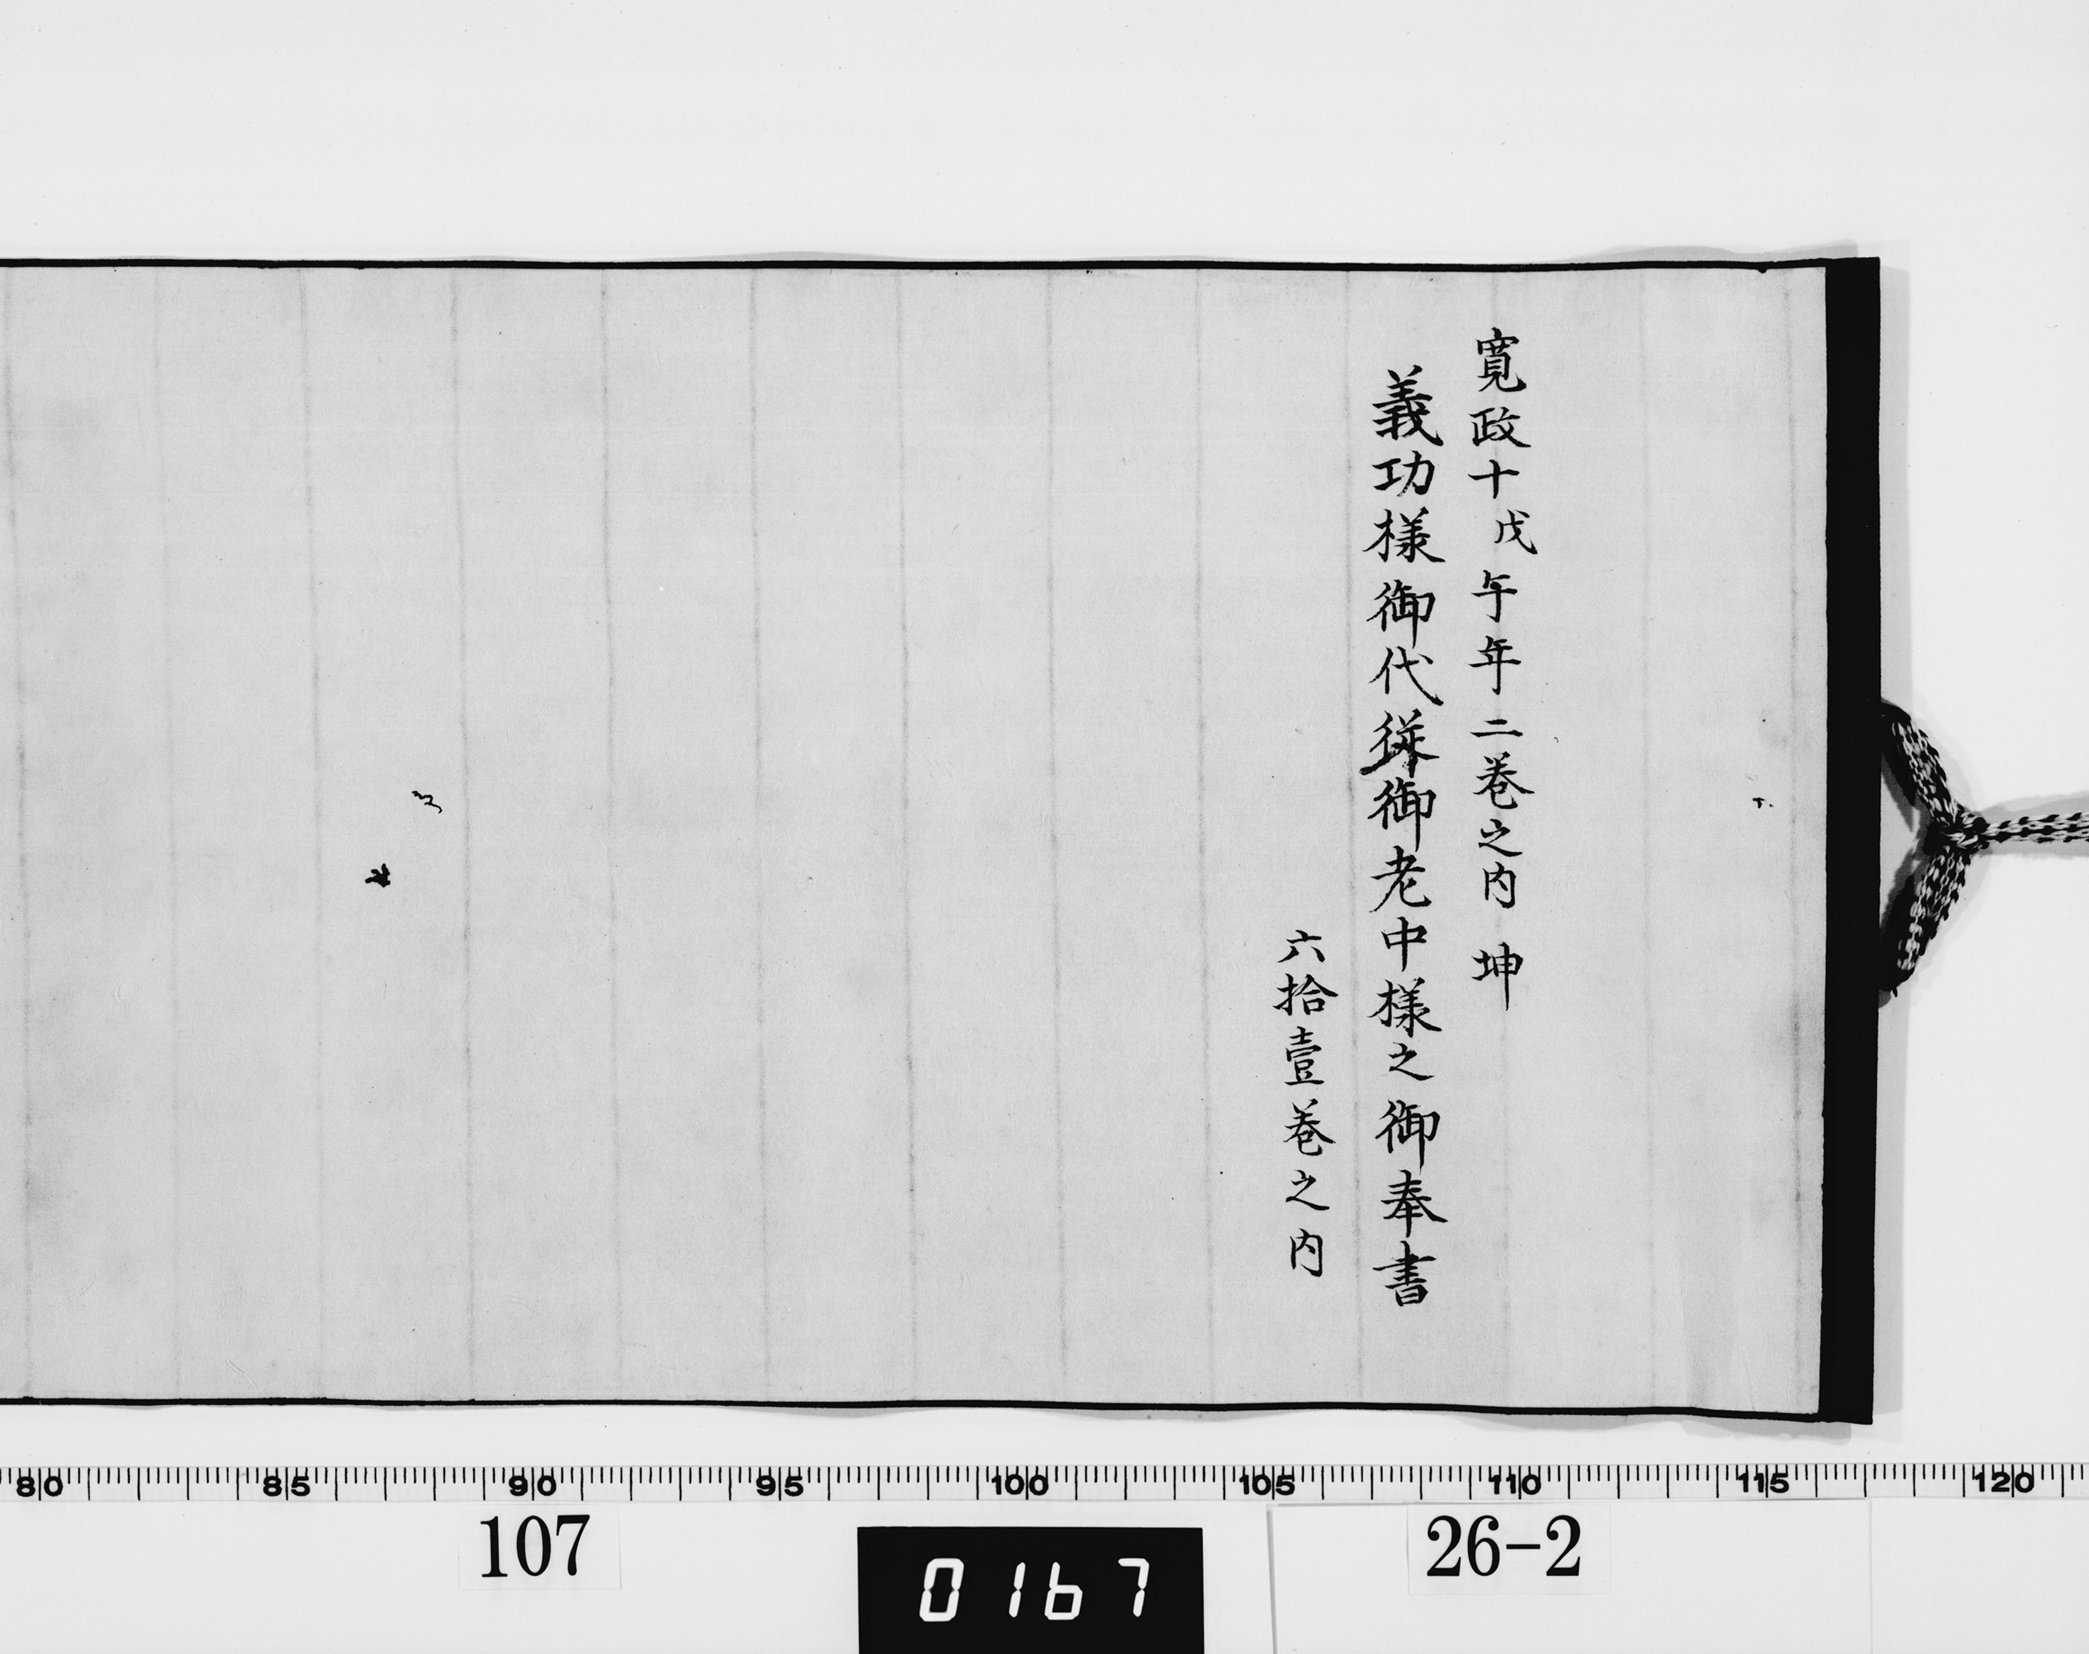 寛政十戊午年二巻之内 坤
義功様御代従御老中様之御奉書
六拾壹巻之内
80 85 90 95 100 105 110 115 120
107
0167
26-2